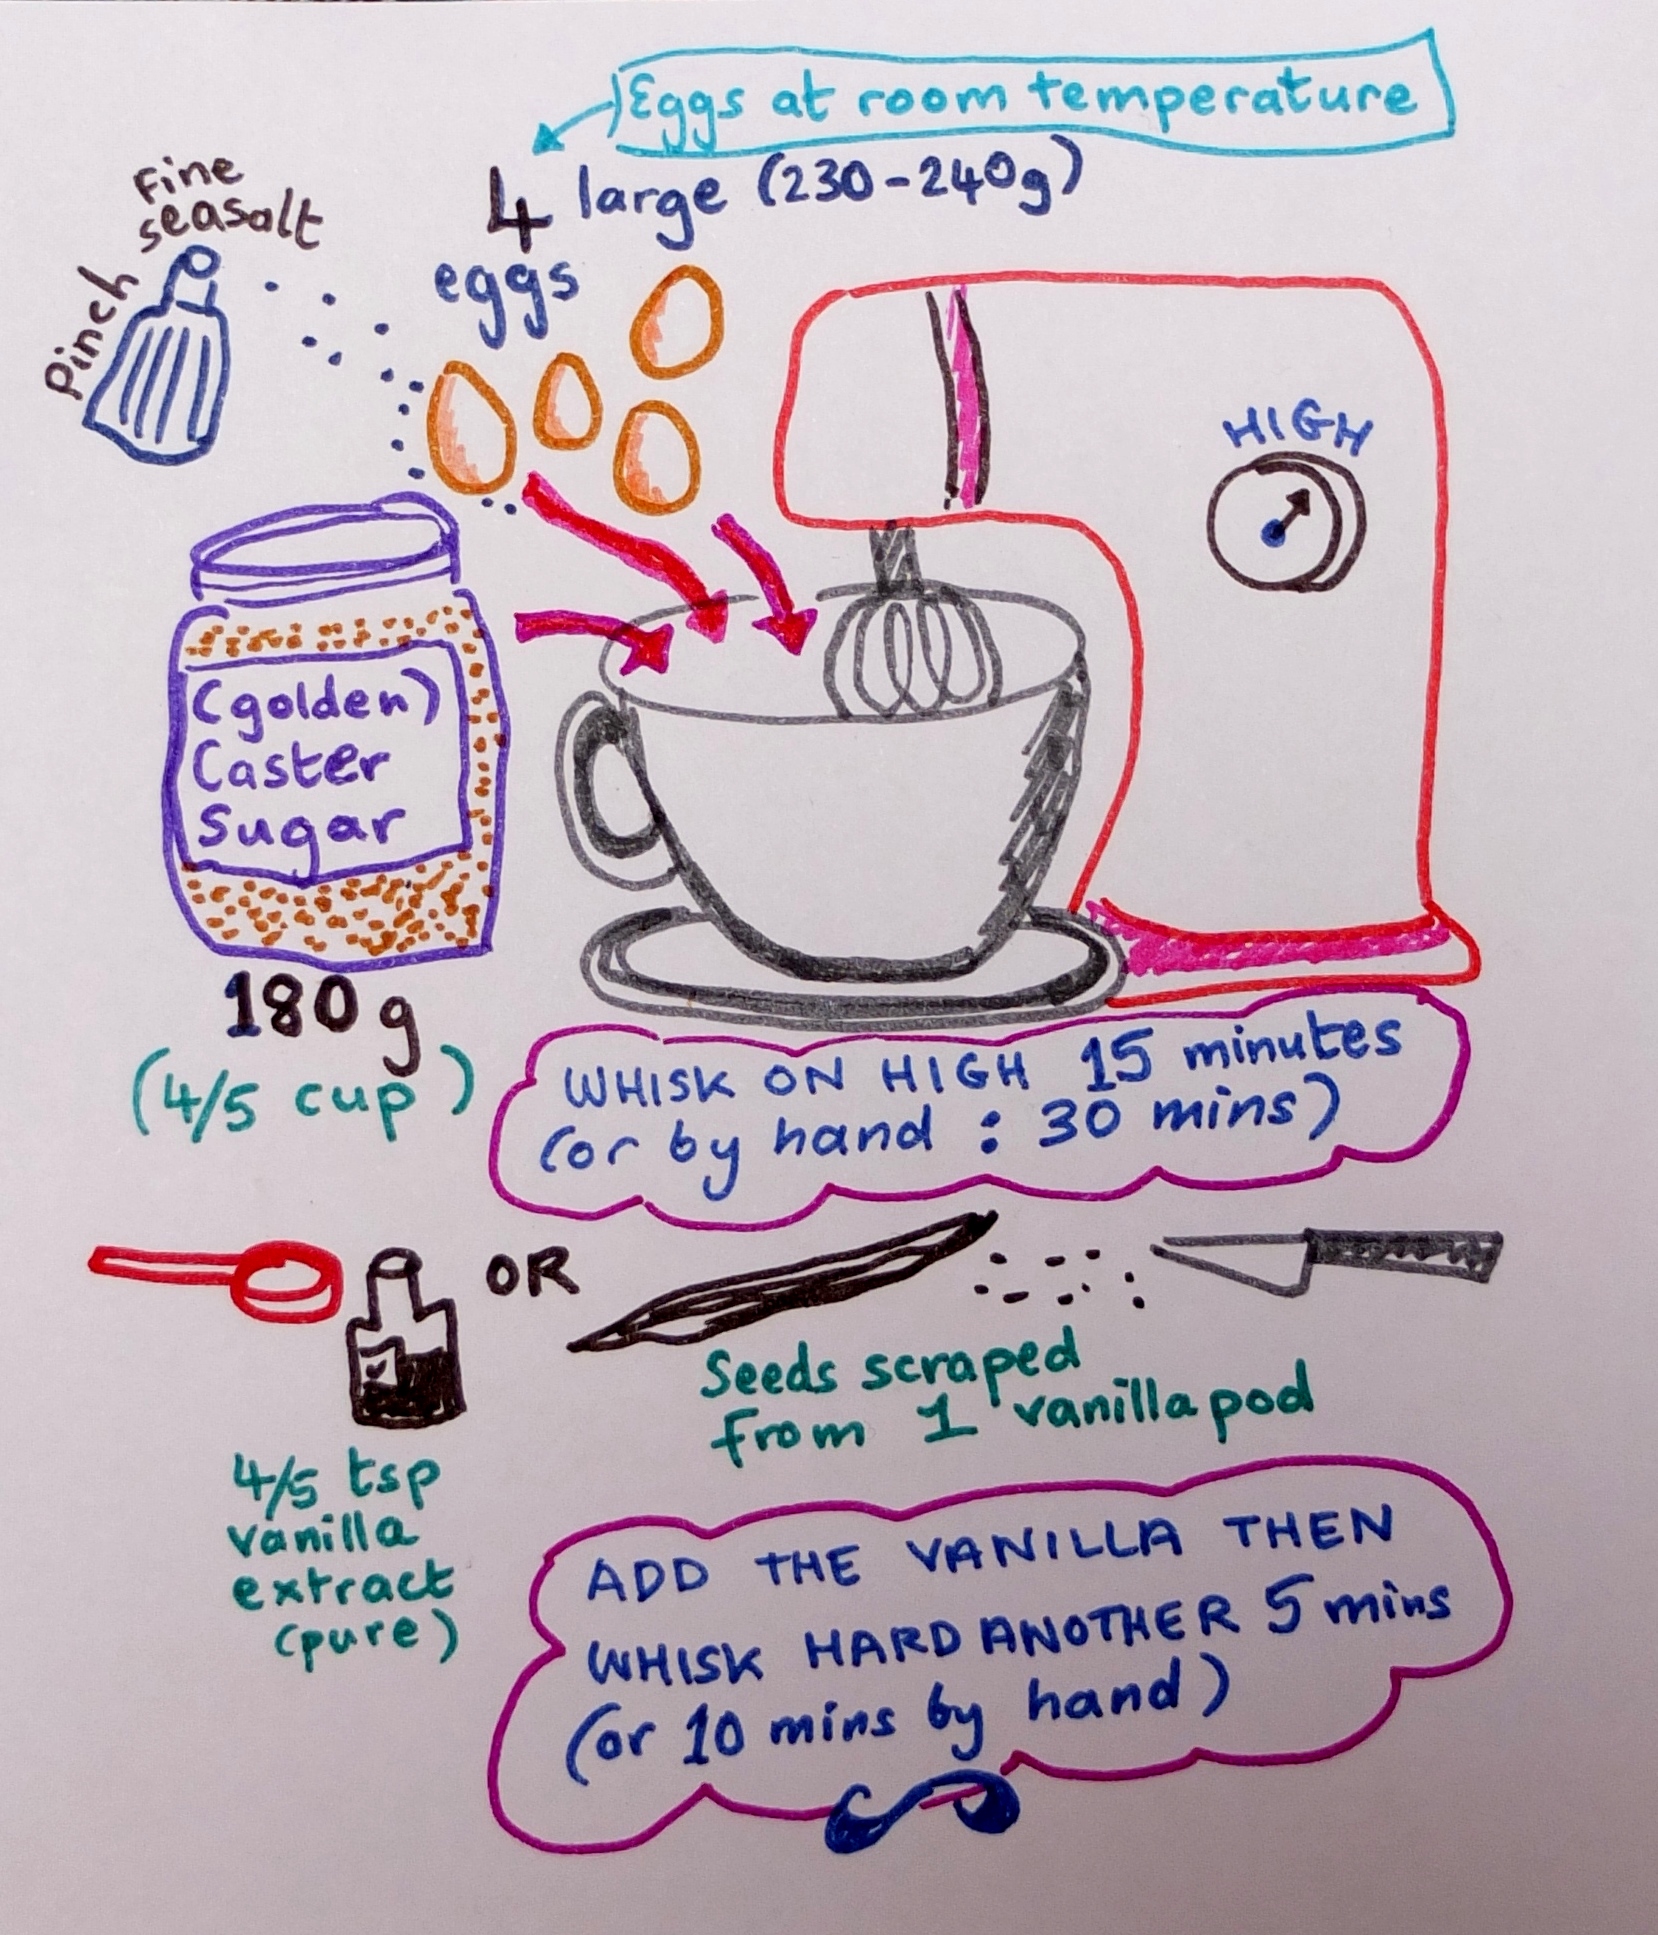 Eggs at room temperature
4 large (230-240g)
eggs
Pinch
Fine
seasalt
HIGH
(golden)
Caster
Sugar
180g
(4/5 cup)
WHISK ON HIGH 15 minutes
(or by hand : 30 mins)
OR
Seeds scraped
from 1 vanilla pod
4/5 tsp
vanilla
extract
(pure)
ADD THE VANILLA THEN
WHISK HARD ANOTHER 5 mins
(or 10 mins by hand)